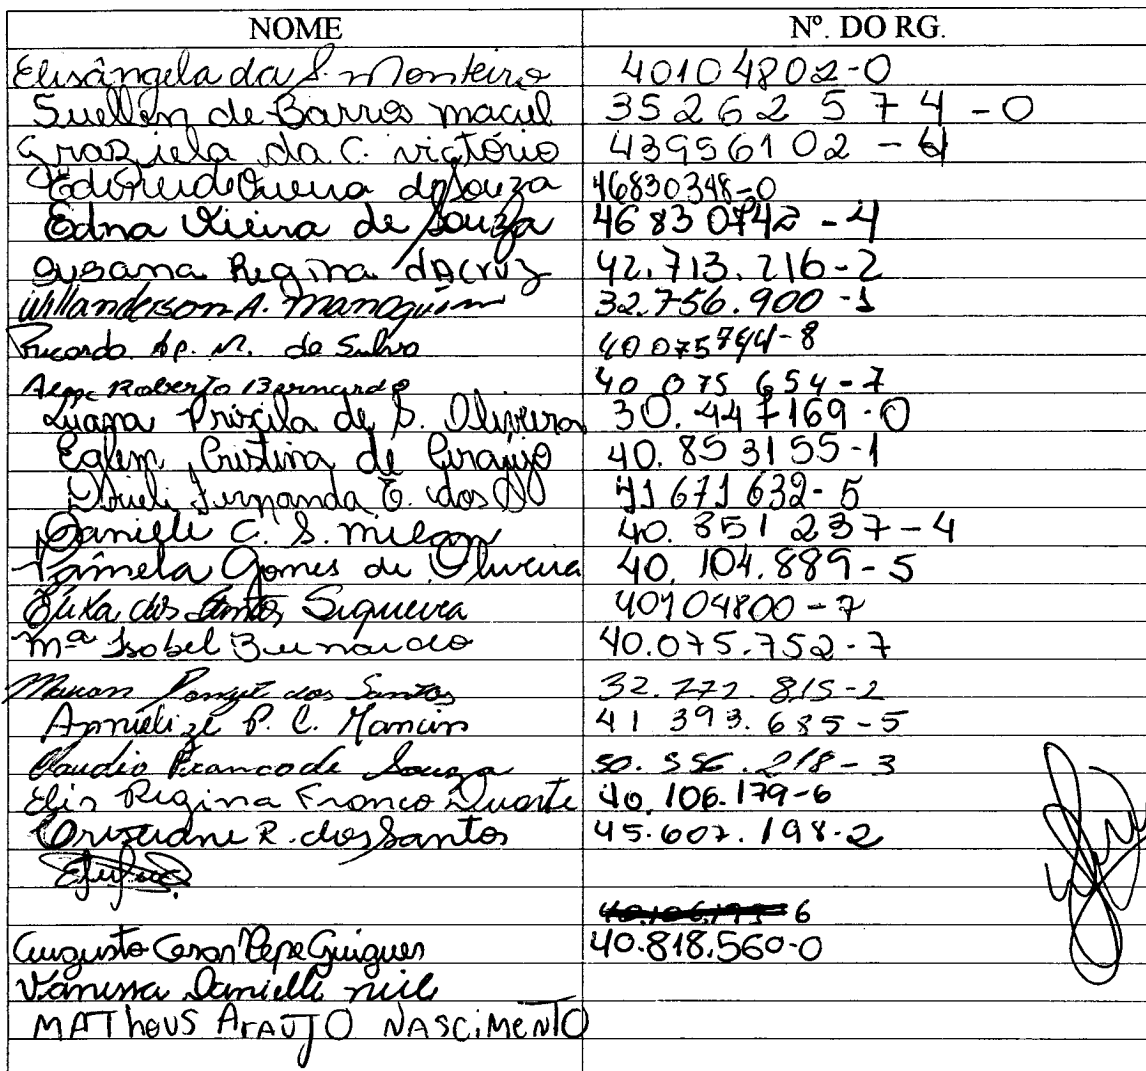 NOME Nº. DO RG.
Elisângela da S. Monteiro 40104802-0
Suellen de Barros maciel 35262574-0
Graziela da C. victório 43956102-
de Souza 46830348-0
Edna Vieira de Souza 46830742-4
Susana Regina da Cruz 42.713.216-2
Willanderson A. Manoquim 32.756.900-1
Ricardo Ap. de Silva 40075744-8
Roberto Bernardo 40 075 654-7
Luana Priscila de S. Oliveira 30.447169-0
Eglem Cristina de Araújo 40.853155-1
Fernanda dos 41671632-5
Danielle C. S. milan 40.351 237-4
Pâmela Gomes de Oliveira 40.104.889-5
dos Santos Siqueira 40104800-7
Mª Isabel Bernardo 40.075.752-7
dos Santos 32.772.815-2
Annielize P. C. Mancin 41 393.685-5
Claudio Franco de Souza 50.556.218-3
Elis Regina Franco Duarte 40.106.179-6
Crisciane R. dos Santos 45.607.198-2
6
Augusto Cesar Pepe Guigues 40.818.560-0
Vanessa Danielle
MATheus ArAUJO NASCiMeNTO